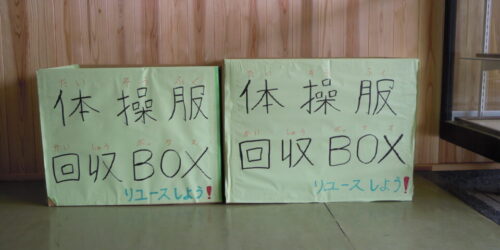 たい そう ふく
体操服
かい しゅう ボックス
回収BOX
リユースしよう!
たい そう ふく
体操服
かい しゅう ボックス
回収BOX
リユースしよう!